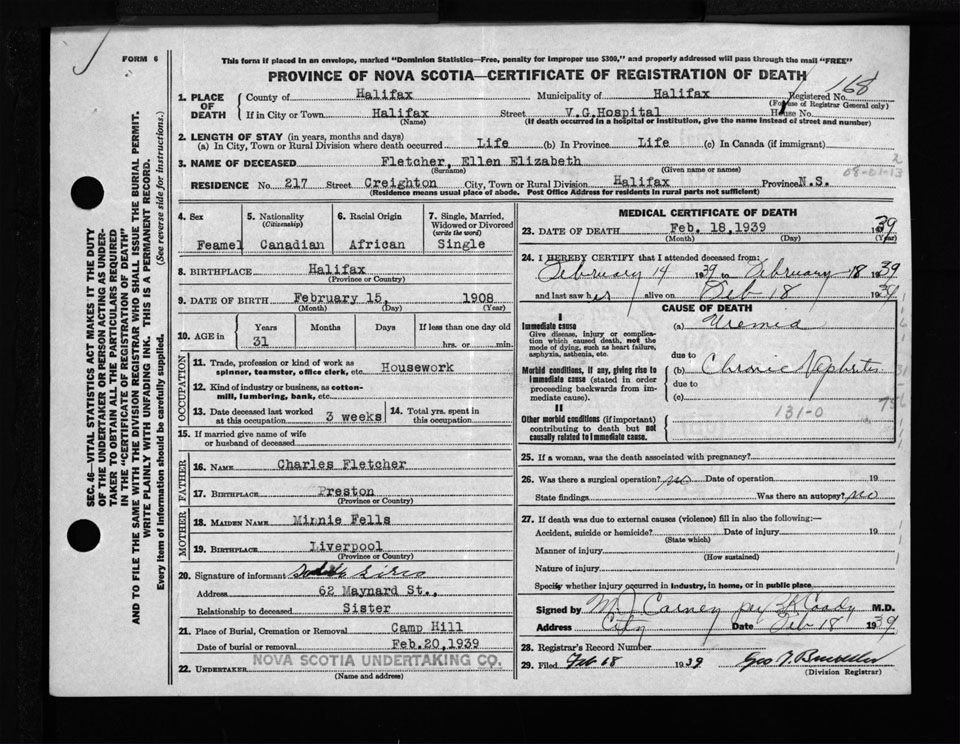 FORM 6
This form if placed in an envelope, marked "Dominion Statistics—Free, penalty for improper use $300," and properly addressed will pass through the mail "FREE"
PROVINCE OF NOVA SCOTIA—CERTIFICATE OF REGISTRATION OF DEATH
168
1. PLACE OF DEATH { County of Halifax Municipality of Halifax Registered No.
(For use of Registrar General only)
If in City or Town Halifax Street V.G.Hospital House No.
(Name) (If death occurred in a hospital or institution, give the name instead of street and number)
2. LENGTH OF STAY (in years, months and days)
(a) In City, Town or Rural Division where death occurred Life (b) In Province Life (c) In Canada (if immigrant)
3. NAME OF DECEASED Fletcher, Ellen Elizabeth
(Surname) (Given name or names)
2
08-01-13
RESIDENCE No. 217 Street Creighton City, Town or Rural Division Halifax Province N.S.
(Residence means usual place of abode. Post Office Address for residents in rural parts not sufficient)
4. Sex 5. Nationality (Citizenship) 6. Racial Origin 7. Single, Married, Widowed or Divorced (write the word)
Feamel Canadian African Single
8. BIRTHPLACE Halifax
(Province or Country)
9. DATE OF BIRTH February 15, 1908
(Month) (Day) (Year)
10. AGE in { Years Months Days If less than one day old
31 hrs. or min.
OCCUPATION
11. Trade, profession or kind of work as spinner, teamster, office clerk, etc. Housework
12. Kind of industry or business, as cotton-mill, lumbering, bank, etc.
13. Date deceased last worked at this occupation 3 weeks 14. Total yrs. spent in this occupation
15. If married give name of wife or husband of deceased
FATHER
16. NAME Charles Fletcher
17. BIRTHPLACE Preston
(Province or Country)
MOTHER
18. MAIDEN NAME Minnie Fells
19. BIRTHPLACE Liverpool
(Province or Country)
20. Signature of informant
Address 62 Maynard St.,
Relationship to deceased Sister
21. Place of Burial, Cremation or Removal Camp Hill
Date of burial or removal Feb.20,1939
22. UNDERTAKER NOVA SCOTIA UNDERTAKING CO.
(Name and address)
MEDICAL CERTIFICATE OF DEATH
23. DATE OF DEATH Feb. 18,1939 1939
(Month) (Day) (Year)
24. I HEREBY CERTIFY that I attended deceased from:
February 14 1939 to February 18 1939
and last saw her alive on Feb 18 1939
CAUSE OF DEATH
I
Immediate cause (a) Uremia
Give disease, injury or complication which caused death, not the mode of dying, such as heart failure, asphyxia, asthenia, etc.
due to
Morbid conditions, if any, giving rise to immediate cause (stated in order proceeding backwards from immediate cause).
(b) Chronic Nephritis
due to
(c)
131-0
II
Other morbid conditions (if important) contributing to death but not causally related to immediate cause.
25. If a woman, was the death associated with pregnancy?
26. Was there a surgical operation? no Date of operation 19
State findings Was there an autopsy? no
27. If death was due to external causes (violence) fill in also the following:—
Accident, suicide or homicide? Date of injury 19
(State which)
Manner of injury
(How sustained)
Nature of injury
Specify whether injury occurred in industry, in home, or in public place
Signed by M J Carney per Coady M.D.
Address City Date Feb 18 1939
28. Registrar's Record Number
29. Filed Feb 18 1939
(Division Registrar)
SEC. 46—VITAL STATISTICS ACT MAKES IT THE DUTY
OF THE UNDERTAKER OR PERSON ACTING AS UNDER-
TAKER TO OBTAIN ALL THE PARTICULARS REQUIRED
IN THE "CERTIFICATE OF REGISTRATION OF DEATH"
AND TO FILE THE SAME WITH THE DIVISION REGISTRAR WHO SHALL ISSUE THE BURIAL PERMIT.
WRITE PLAINLY WITH UNFADING INK. THIS IS A PERMANENT RECORD.
Every item of information should be carefully supplied. (See reverse side for instructions.)